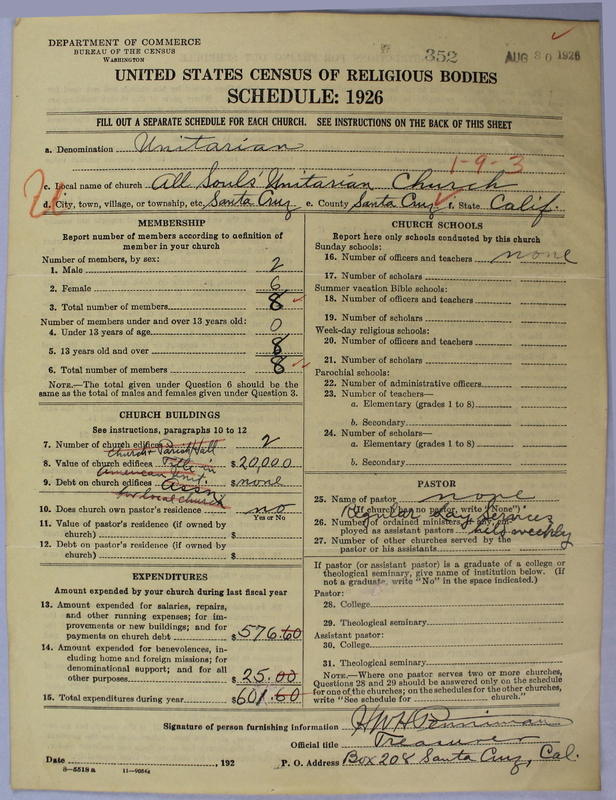 DEPARTMENT OF COMMERCE
BUREAU OF THE CENSUS
WASHINGTON
352
AUG 30 1926
UNITED STATES CENSUS OF RELIGIOUS BODIES
SCHEDULE: 1926
FILL OUT A SEPARATE SCHEDULE FOR EACH CHURCH. SEE INSTRUCTIONS ON THE BACK OF THIS SHEET
a. Denomination Unitarian
1-9-3
c. Local name of church All Souls' Unitarian Church
d. City, town, village, or township, etc. Santa Cruz e. County Santa Cruz f. State Calif.
MEMBERSHIP
Report number of members according to definition of
member in your church
Number of members, by sex:
1. Male 2
2. Female 6
3. Total number of members 8
Number of members under and over 13 years old:
4. Under 13 years of age 0
5. 13 years old and over 8
6. Total number of members 8
NOTE.—The total given under Question 6 should be the
same as the total of males and females given under Question 3.
CHURCH BUILDINGS
See instructions, paragraphs 10 to 12
7. Number of church edifices 2
Church & Parish Hall
8. Value of church edifices Title in $20,000
American Unit.
9. Debt on church edifices Assn $none
for local church
10. Does church own pastor's residence no
Yes or No
11. Value of pastor's residence (if owned by
church) $
12. Debt on pastor's residence (if owned by
church) $
EXPENDITURES
Amount expended by your church during last fiscal year
13. Amount expended for salaries, repairs,
and other running expenses; for im-
provements or new buildings; and for
payments on church debt $576.60
14. Amount expended for benevolences, in-
cluding home and foreign missions; for
denominational support; and for all
other purposes $25.00
15. Total expenditures during year $601.60
CHURCH SCHOOLS
Report here only schools conducted by this church
Sunday schools:
16. Number of officers and teachers none
17. Number of scholars
Summer vacation Bible schools:
18. Number of officers and teachers
19. Number of scholars
Week-day religious schools:
20. Number of officers and teachers
21. Number of scholars
Parochial schools:
22. Number of administrative officers
23. Number of teachers—
a. Elementary (grades 1 to 8)
b. Secondary
24. Number of scholars—
a. Elementary (grades 1 to 8)
b. Secondary
PASTOR
25. Name of pastor none
(If church has no pastor, write "None")
Regular Lay services
26. Number of ordained ministers, if any, em-
ployed as assistant pastors held weekly
27. Number of other churches served by the
pastor or his assistants
If pastor (or assistant pastor) is a graduate of a college or
theological seminary, give name of institution below. (If
not a graduate, write "No" in the space indicated.)
Pastor:
28. College
29. Theological seminary
Assistant pastor:
30. College
31. Theological seminary
NOTE.—Where one pastor serves two or more churches,
Questions 28 and 29 should be answered only on the schedule
for one of the churches; on the schedules for the other churches,
write "See schedule for church."
Signature of person furnishing information H W H Penniman
Official title Treasurer
Date , 192 P. O. Address Box 208 Santa Cruz, Cal.
8—5518 a 11—9054a